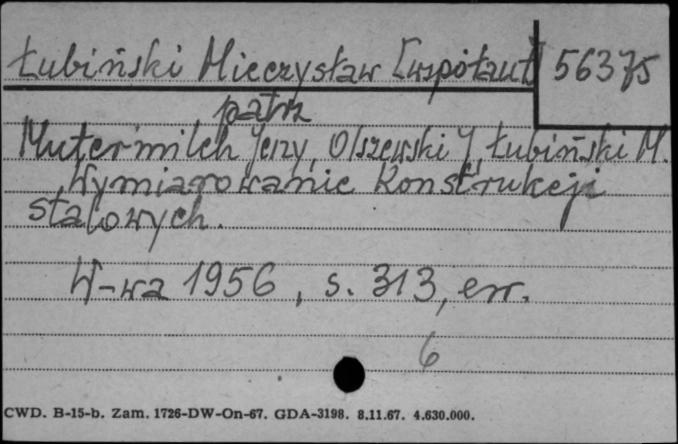 Łubiński Mieczysław [współaut] 56375
patrz
Mutermilch Jerzy, Olszewski J, Łubiński M.
Wymiarowanie Konstrukcji
stalowych.
W-wa 1956, s. 313, err.
6
CWD. B-15-b. Zam. 1726-DW-On-67. GDA-3198. 8.11.67. 4.630.000.